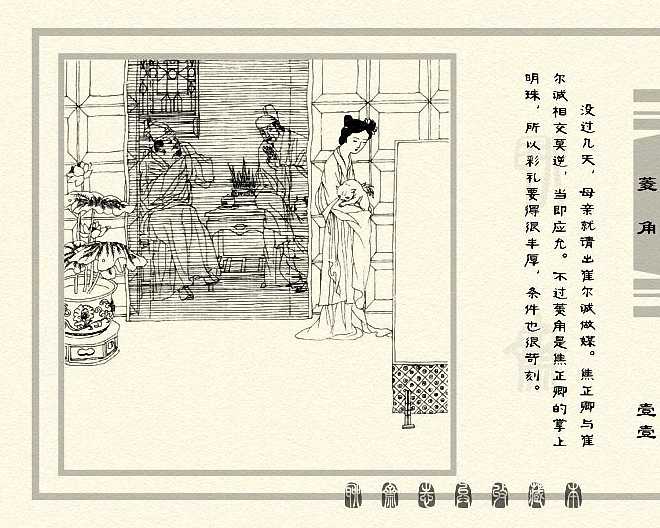 没过几天，母亲就请出崔尔诚做媒。焦正卿与崔
尔诚相交莫逆，当即应允。不过菱角是焦正卿的掌上
明珠，所以彩礼要得很丰厚，条件也很苛刻。
菱角
壹壹
聊斋志异收藏本